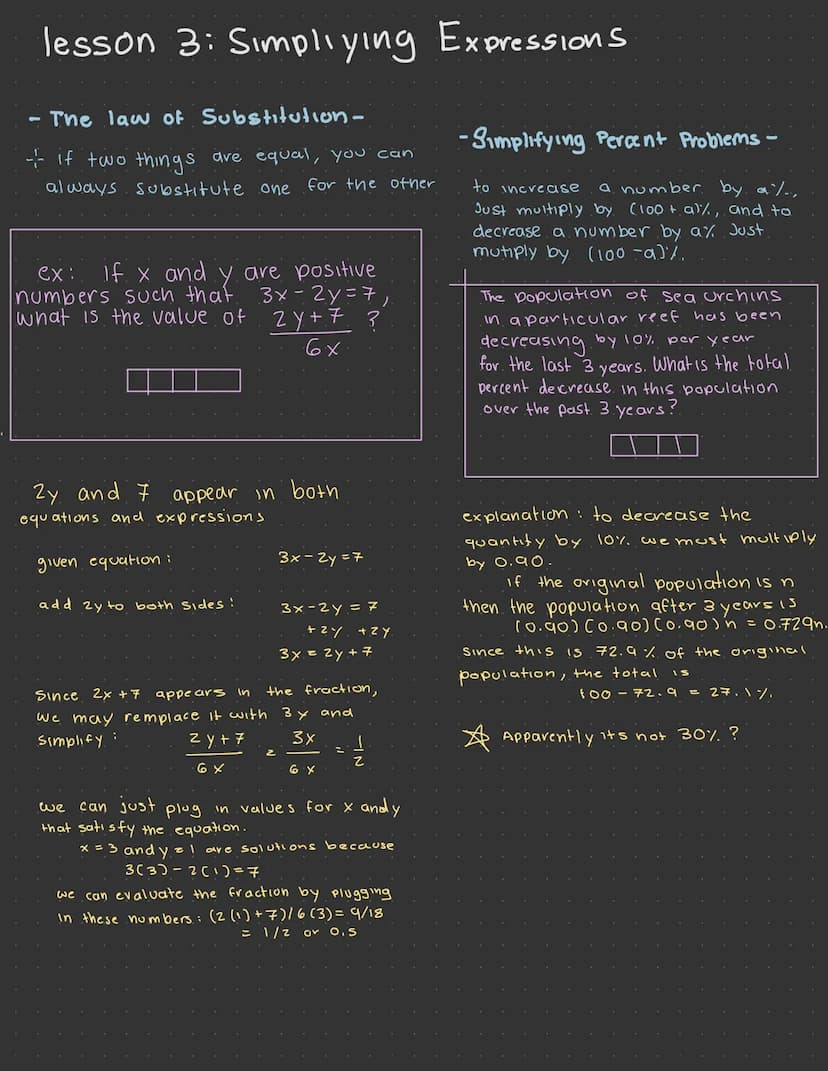 lesson 3: Simpliying Expressions
- The law of Substitution -
-¦- if two things are equal, you can
always substitute one for the other
ex: If x and y are positive
numbers such that 3x - 2y = 7,
what is the value of 2y + 7 ?
6x
2y and 7 appear in both
equations and expressions
given equation: 3x - 2y = 7
add 2y to both sides: 3x - 2y = 7
+2y +2y
3x = 2y + 7
Since 2x + 7 appears in the fraction,
we may remplace it with 3x and
simplify: 2y + 7 = 3x = 1
6x 6x 2
we can just plug in values for x and y
that satisfy the equation.
x = 3 and y = 1 are solutions because
3(3) - 2(1) = 7
we can evaluate the fraction by plugging
in these numbers: (2(1) + 7)/6(3) = 9/18
= 1/2 or 0.5
- Simplifying Percent Problems -
to increase a number by a%,
Just multiply by (100 + a)%, and to
decrease a number by a% Just
mutiply by (100 - a)%.
The population of sea urchins
in a particular reef has been
decreasing by 10% per year
for the last 3 years. What is the total
percent decrease in this population
over the past 3 years?
explanation: to decrease the
quantity by 10% we must multiply
by 0.90.
if the original population is n
then the population after 3 years is
(0.90)(0.90)(0.90)n = 0.729n.
since this is 72.9% of the original
population, the total is
100 - 72.9 = 27.1%.
☆ Apparently its not 30%?